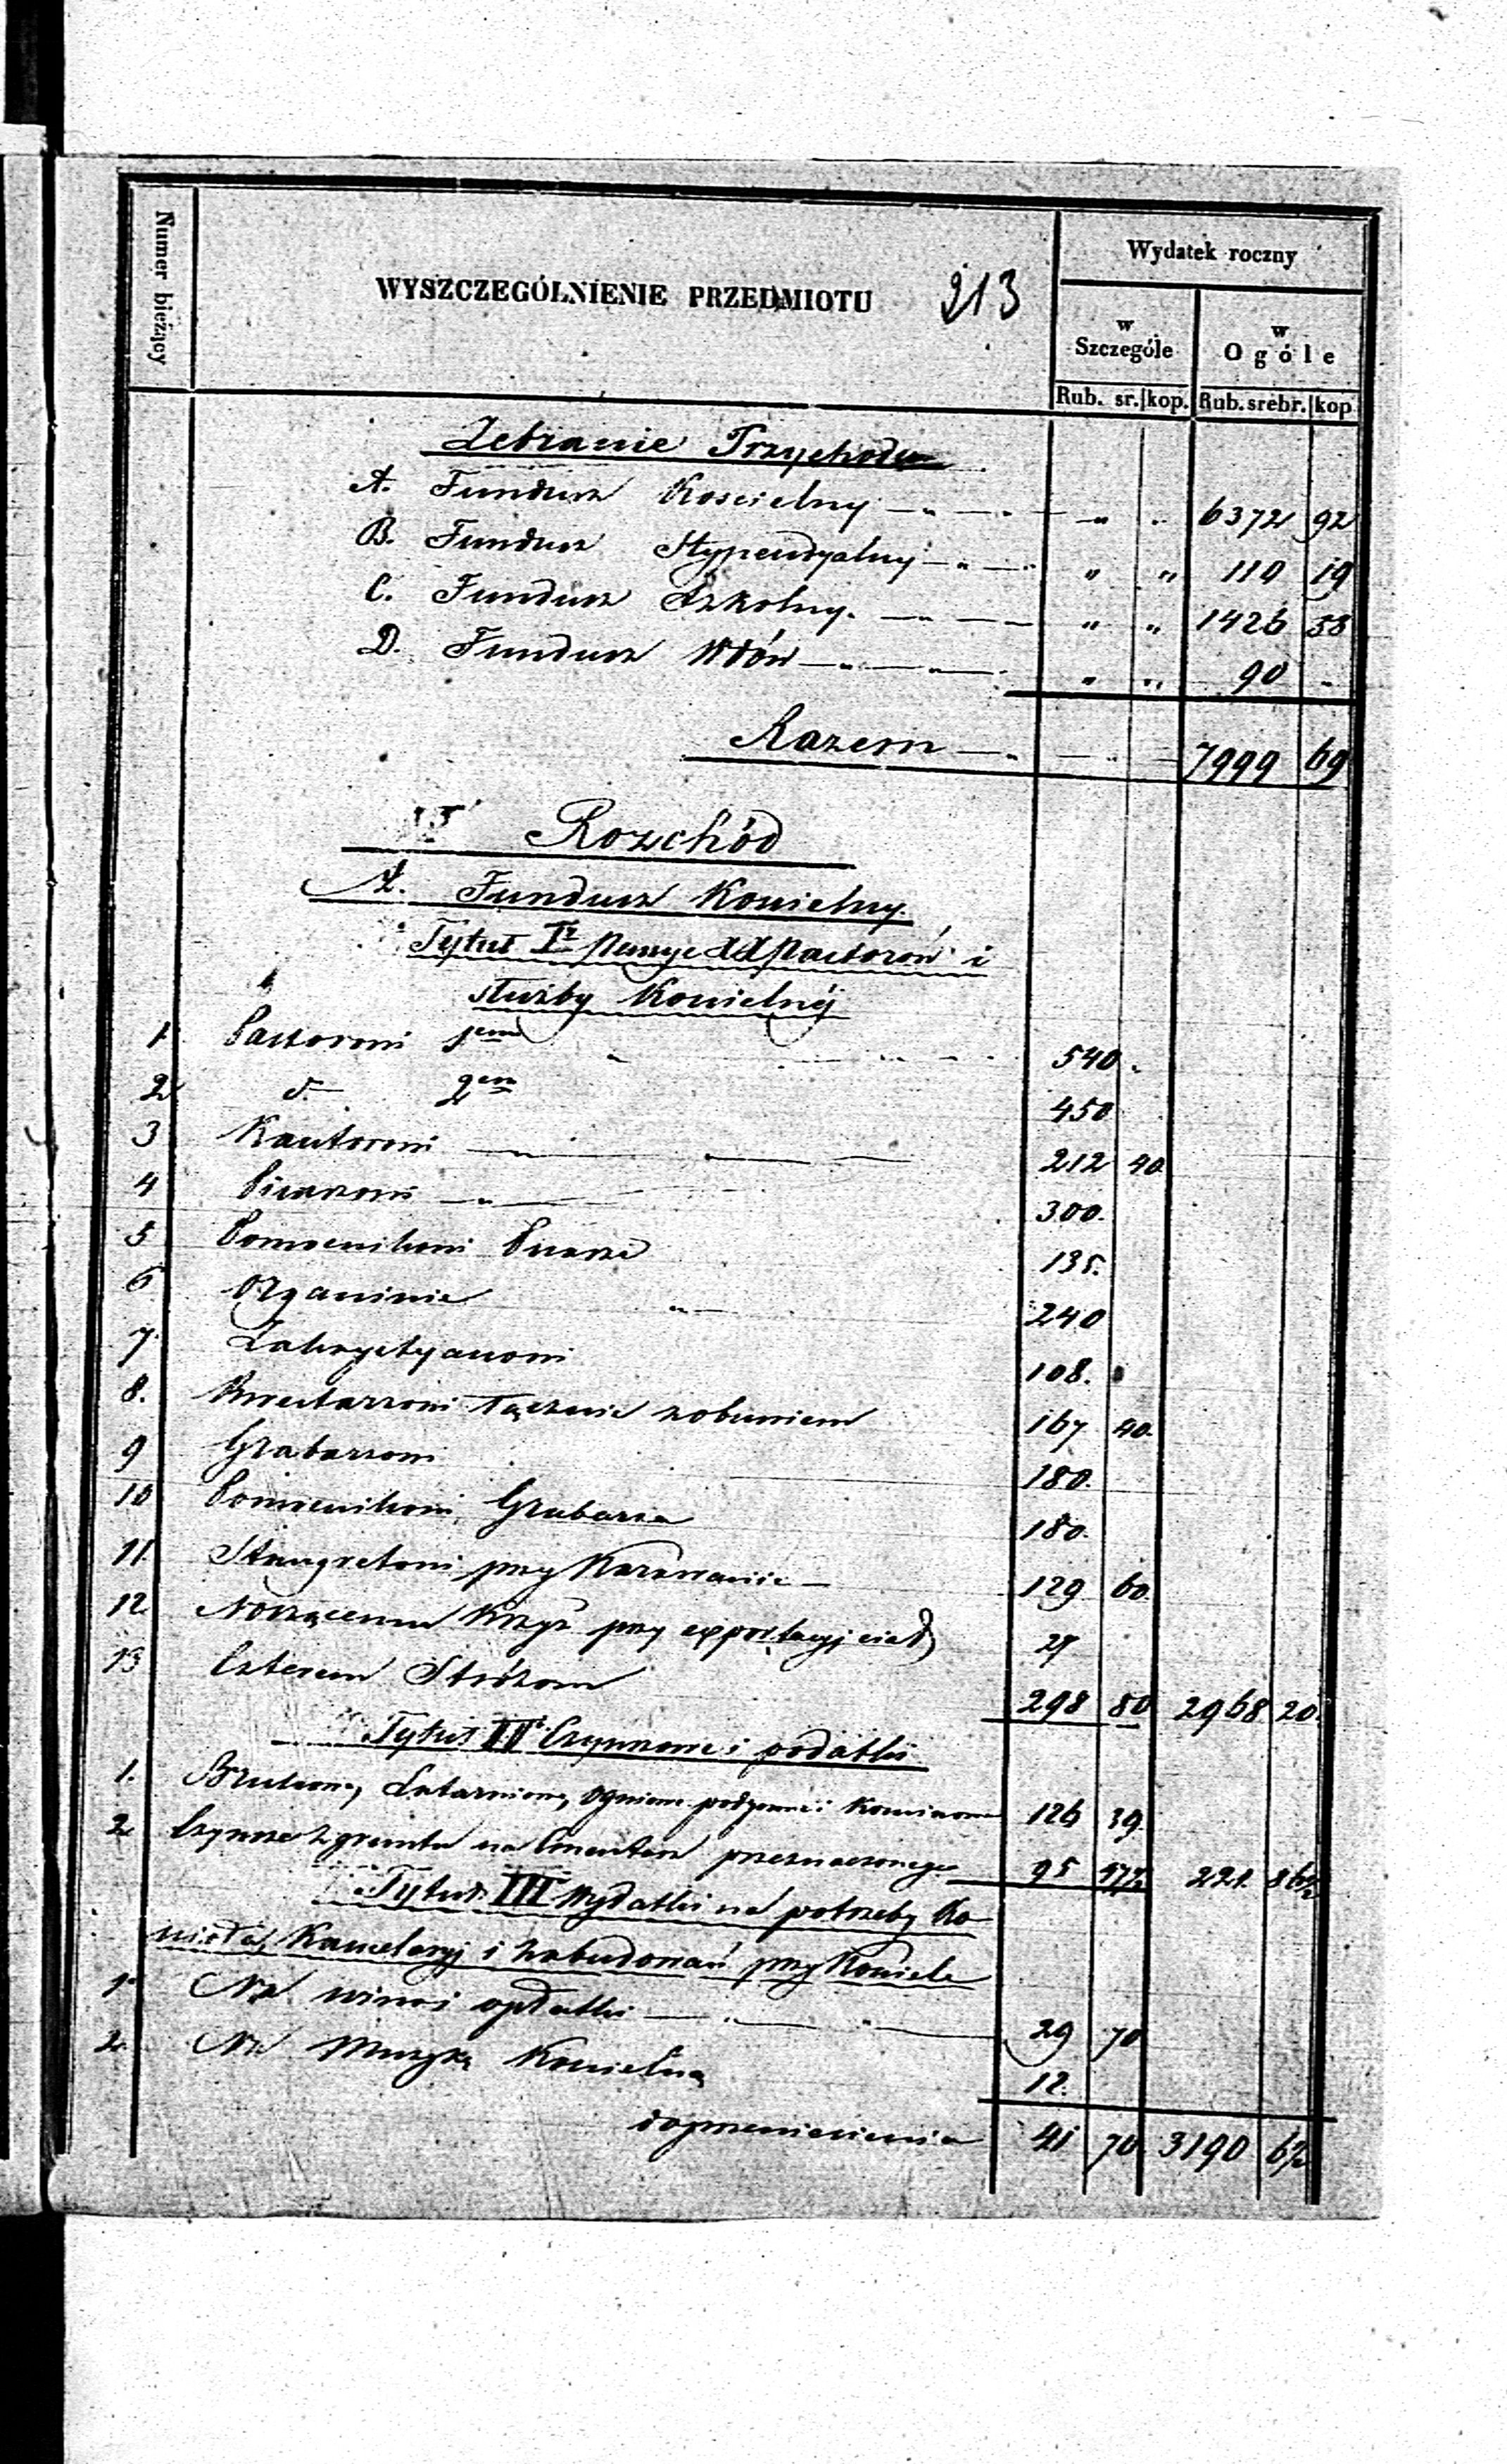 Numer bieżący
WYSZCZEGÓLNIENIE PRZEDMIOTU 213
Wydatek roczny
w Szczególe
w Ogóle
Rub. sr. kop. Rub. srebr. kop
Zebranie Przychodu
A. Fundusz Koscielny 6372 92
B. Fundusz Stypendyalny 110 19
C. Fundusz Szkolny. 1426 58
D. Fundusz Wdów 90
Razem 7999 69
Rozchód
A. Fundusz Kościelny.
Tytuł I Pensye Pastorów i
służby Kościelnéj
1. Pastorowi 1em 540
2 d 2em 450
3 Kantorowi 212 40
4 Pisarzowi 300.
5 Pomocnikowi Pisarza 135.
6 Organiście 240
7. Zakrystyanowi 108.
8. łącznie 167 40.
9 Grabarzowi 180.
10 Pomocnikowi Grabarza 180.
11. przy Karawanie 129 60.
12 Noszącemu Krzyż przy exportacyj ciał 27
13 Czterem Stróżom 298 80 2968 20.
Tytuł II Czynsze i podatki
1. Brukowe, Latarniowe, Ogniowe podymne i Kominowe 126 39.
2 Czynsz z gruntu na Cmentarz przeznaczonego 95 47½ 221. 86½
Tytuł III Wydatki na potrzeby Ko-
ścioła, Kancelaryj i zabudowań przy Kościele
1. Na wino i opłatki 29 70
2. Na Muzykę Kościelną 12.
do przeniesienia 41 70 3190 6½